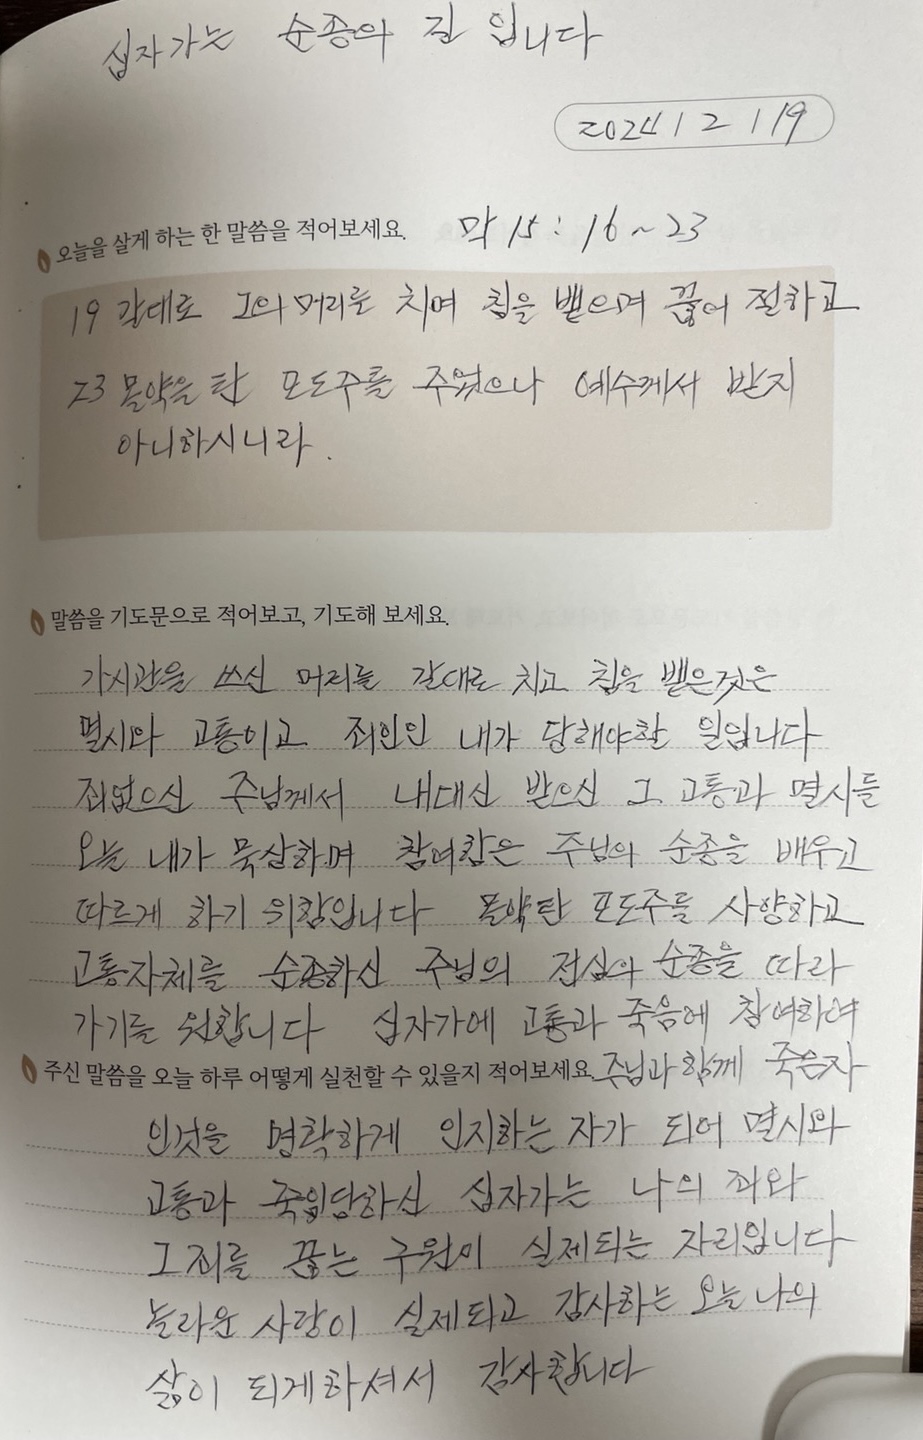 십자가는 순종의 길 입니다
2024 12 19
오늘을 살게 하는 한 말씀을 적어보세요. 막 15 : 16 ~ 23
19 갈대로 그의 머리를 치며 침을 뱉으며 꿇어 절하고
23 몰약을 탄 포도주를 주었으나 예수께서 받지
아니하시니라.
말씀을 기도문으로 적어보고, 기도해 보세요.
가시관을 쓰신 머리를 갈대로 치고 침을 뱉은것은
멸시와 고통이고 죄인인 내가 당해야할 일입니다
죄없으신 주님께서 내대신 받으신 그 고통과 멸시를
오늘 내가 묵상하며 참여함은 주님의 순종을 배우고
따르게 하기 위함입니다 몰약탄 포도주를 사양하고
고통자체를 순종하신 주님의 전심의 순종을 따라
가기를 원합니다 십자가에 고통과 죽음에 참여하여
주신 말씀을 오늘 하루 어떻게 실천할 수 있을지 적어보세요. 주님과 함께 죽은자
인것을 명확하게 인지하는 자가 되어 멸시와
고통과 죽임당하신 십자가는 나의 죄와
그 죄를 끊는 구원이 실제되는 자리입니다
놀라운 사랑이 실제되고 감사하는 오늘 나의
삶이 되게하셔서 감사합니다